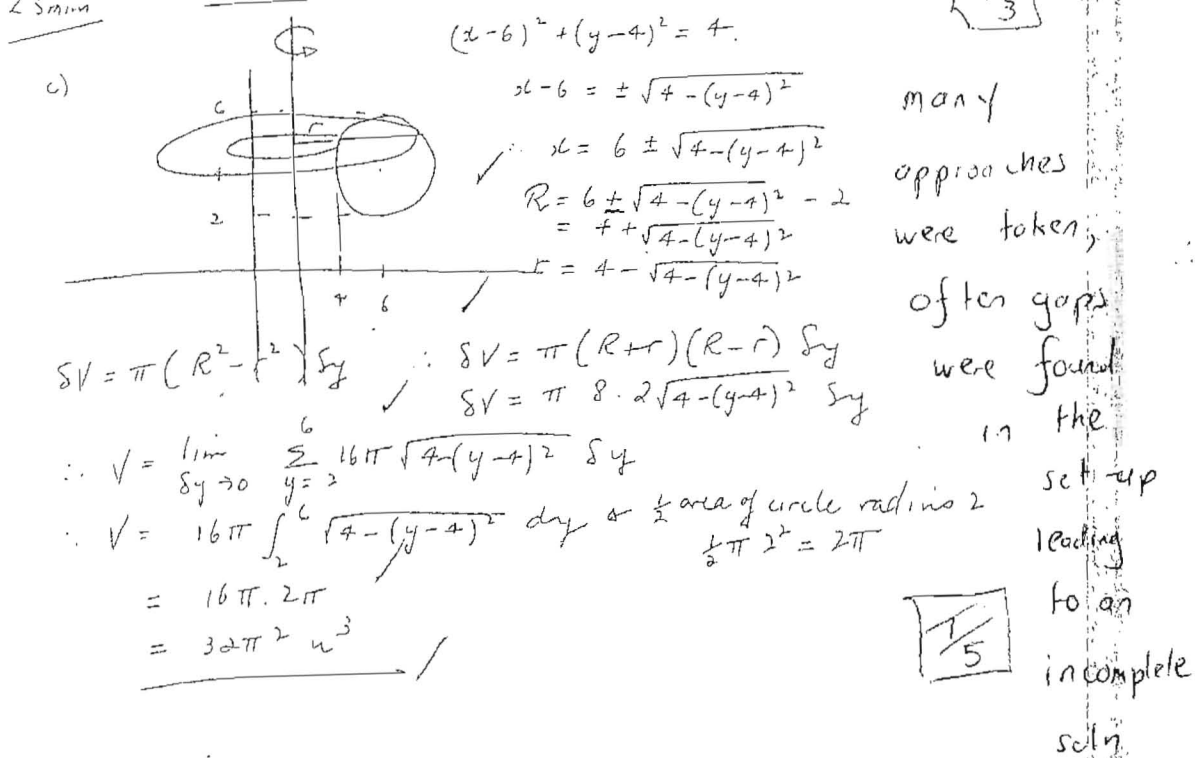 25min
3
c)
(x-6)² + (y-4)² = 4.
x-6 = ± √4-(y-4)²
∴ x = 6 ± √4-(y-4)²
R = 6 ± √4-(y-4)² - 2
= 4 + √4-(y-4)²
r = 4 - √4-(y-4)²
6
r
4
2
4 6
δV = π(R²-r²) δy
∴ δV = π(R+r)(R-r) δy
δV = π 8.2√4-(y-4)² δy
∴ V = lim δy→0 6 Σ y=2 16π √4-(y-4)² δy
∴ V = 16π ∫₂⁶ √4-(y-4)² dy & ½ area of circle radius 2
½π 2² = 2π
= 16π.2π
= 32π² u³
many
approaches
were taken,
often gaps
were found
in the
set up
leading
to an
incomplete
soln.
/5